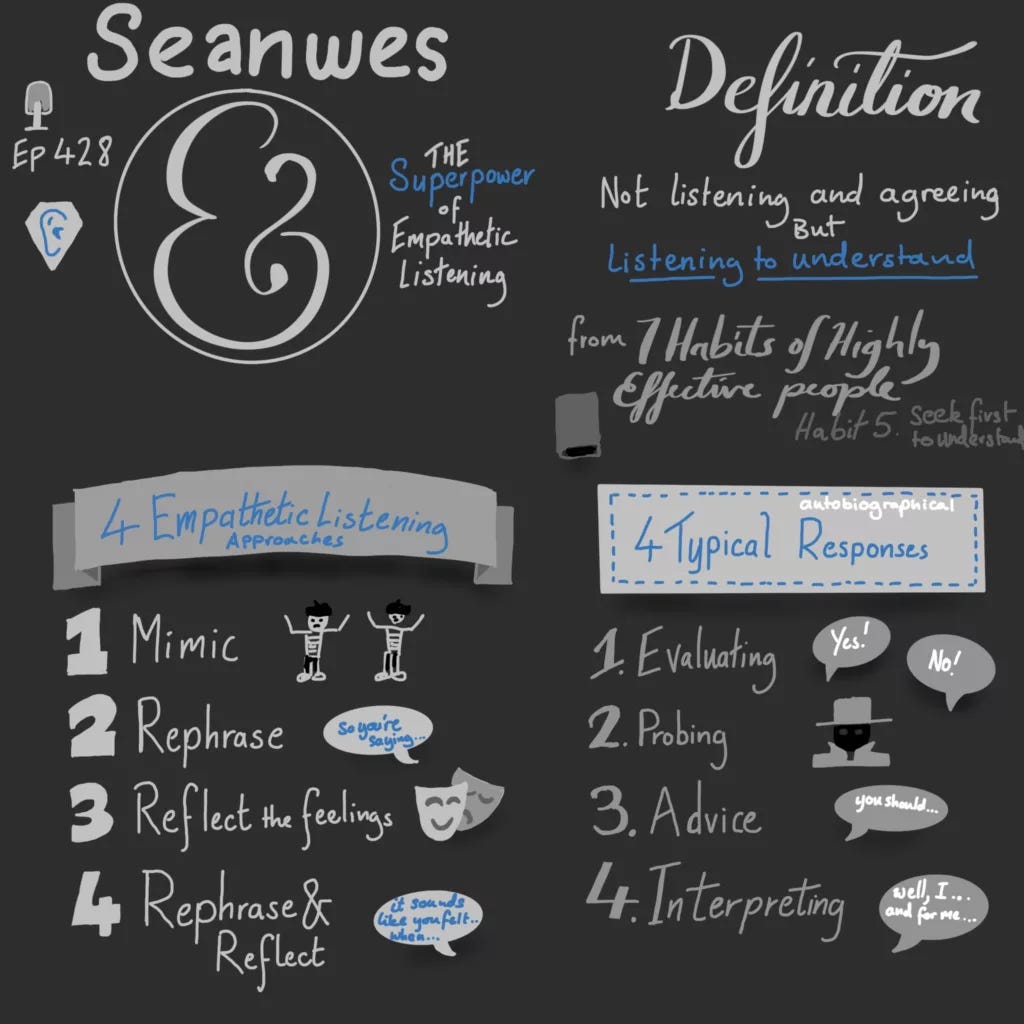 Seanwes
Ep 428
&
THE
Superpower
of
Empathetic
Listening
Definition
Not listening and agreeing
But
Listening to understand
from 7 Habits of Highly
Effective people
Habit 5. Seek first
to understand
4 Empathetic Listening
Approaches
1 Mimic
2 Rephrase
so you're
saying...
3 Reflect the feelings
4 Rephrase &
Reflect
it sounds
like you felt..
when...
autobiographical
4 Typical Responses
1. Evaluating
Yes!
No!
2. Probing
3. Advice
you should...
4. Interpreting
well, I...
and for me...